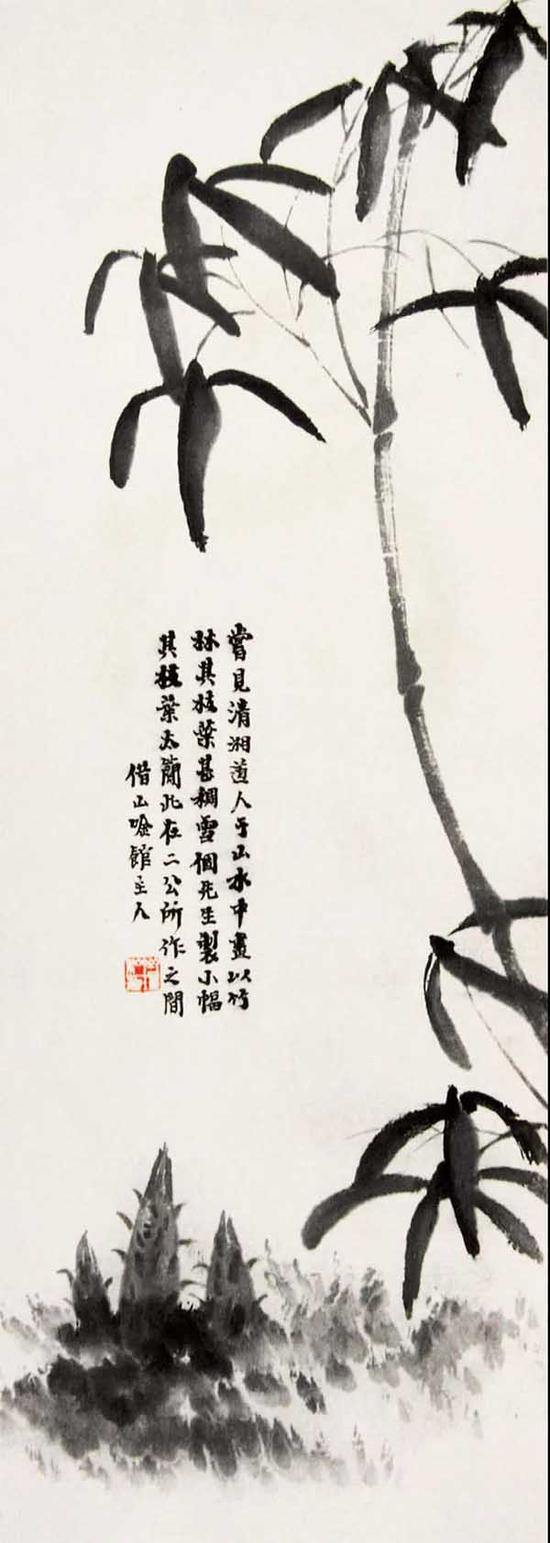 嘗見清湘道人于山水中畫以竹
林其枝葉甚稠雪個先生製小幅
其枝葉太簡此在二公所作之間
借山唫館主人